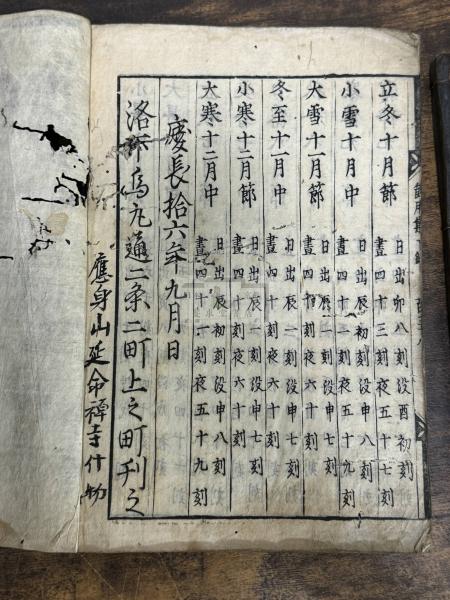 立冬十月節
日出卯八刻没酉初刻
晝四十三刻夜五十七刻
小雪十月中
日出辰初刻没申八刻
晝四十二刻夜五十八刻
大雪十一月節
日出辰一刻没申七刻
晝四十刻夜六十刻
冬至十一月中
日出辰一刻没申七刻
晝四十刻夜六十刻
小寒十二月節
日出辰一刻没申七刻
晝四十刻夜六十刻
大寒十二月中
日出辰初刻没申八刻
晝四十一刻夜五十九刻
慶長拾六年九月日
洛下烏丸通二条二町上之町刊之
應身山延命禅寺什物